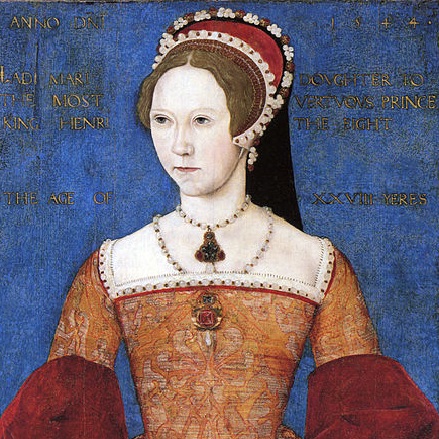 ANNO DNI 1544
LADI MARI DOVGHTER TO
THE MOST VERTVOVS PRINCE
KING HENRI THE EIGHT
THE AGE OF XXVIII YERES